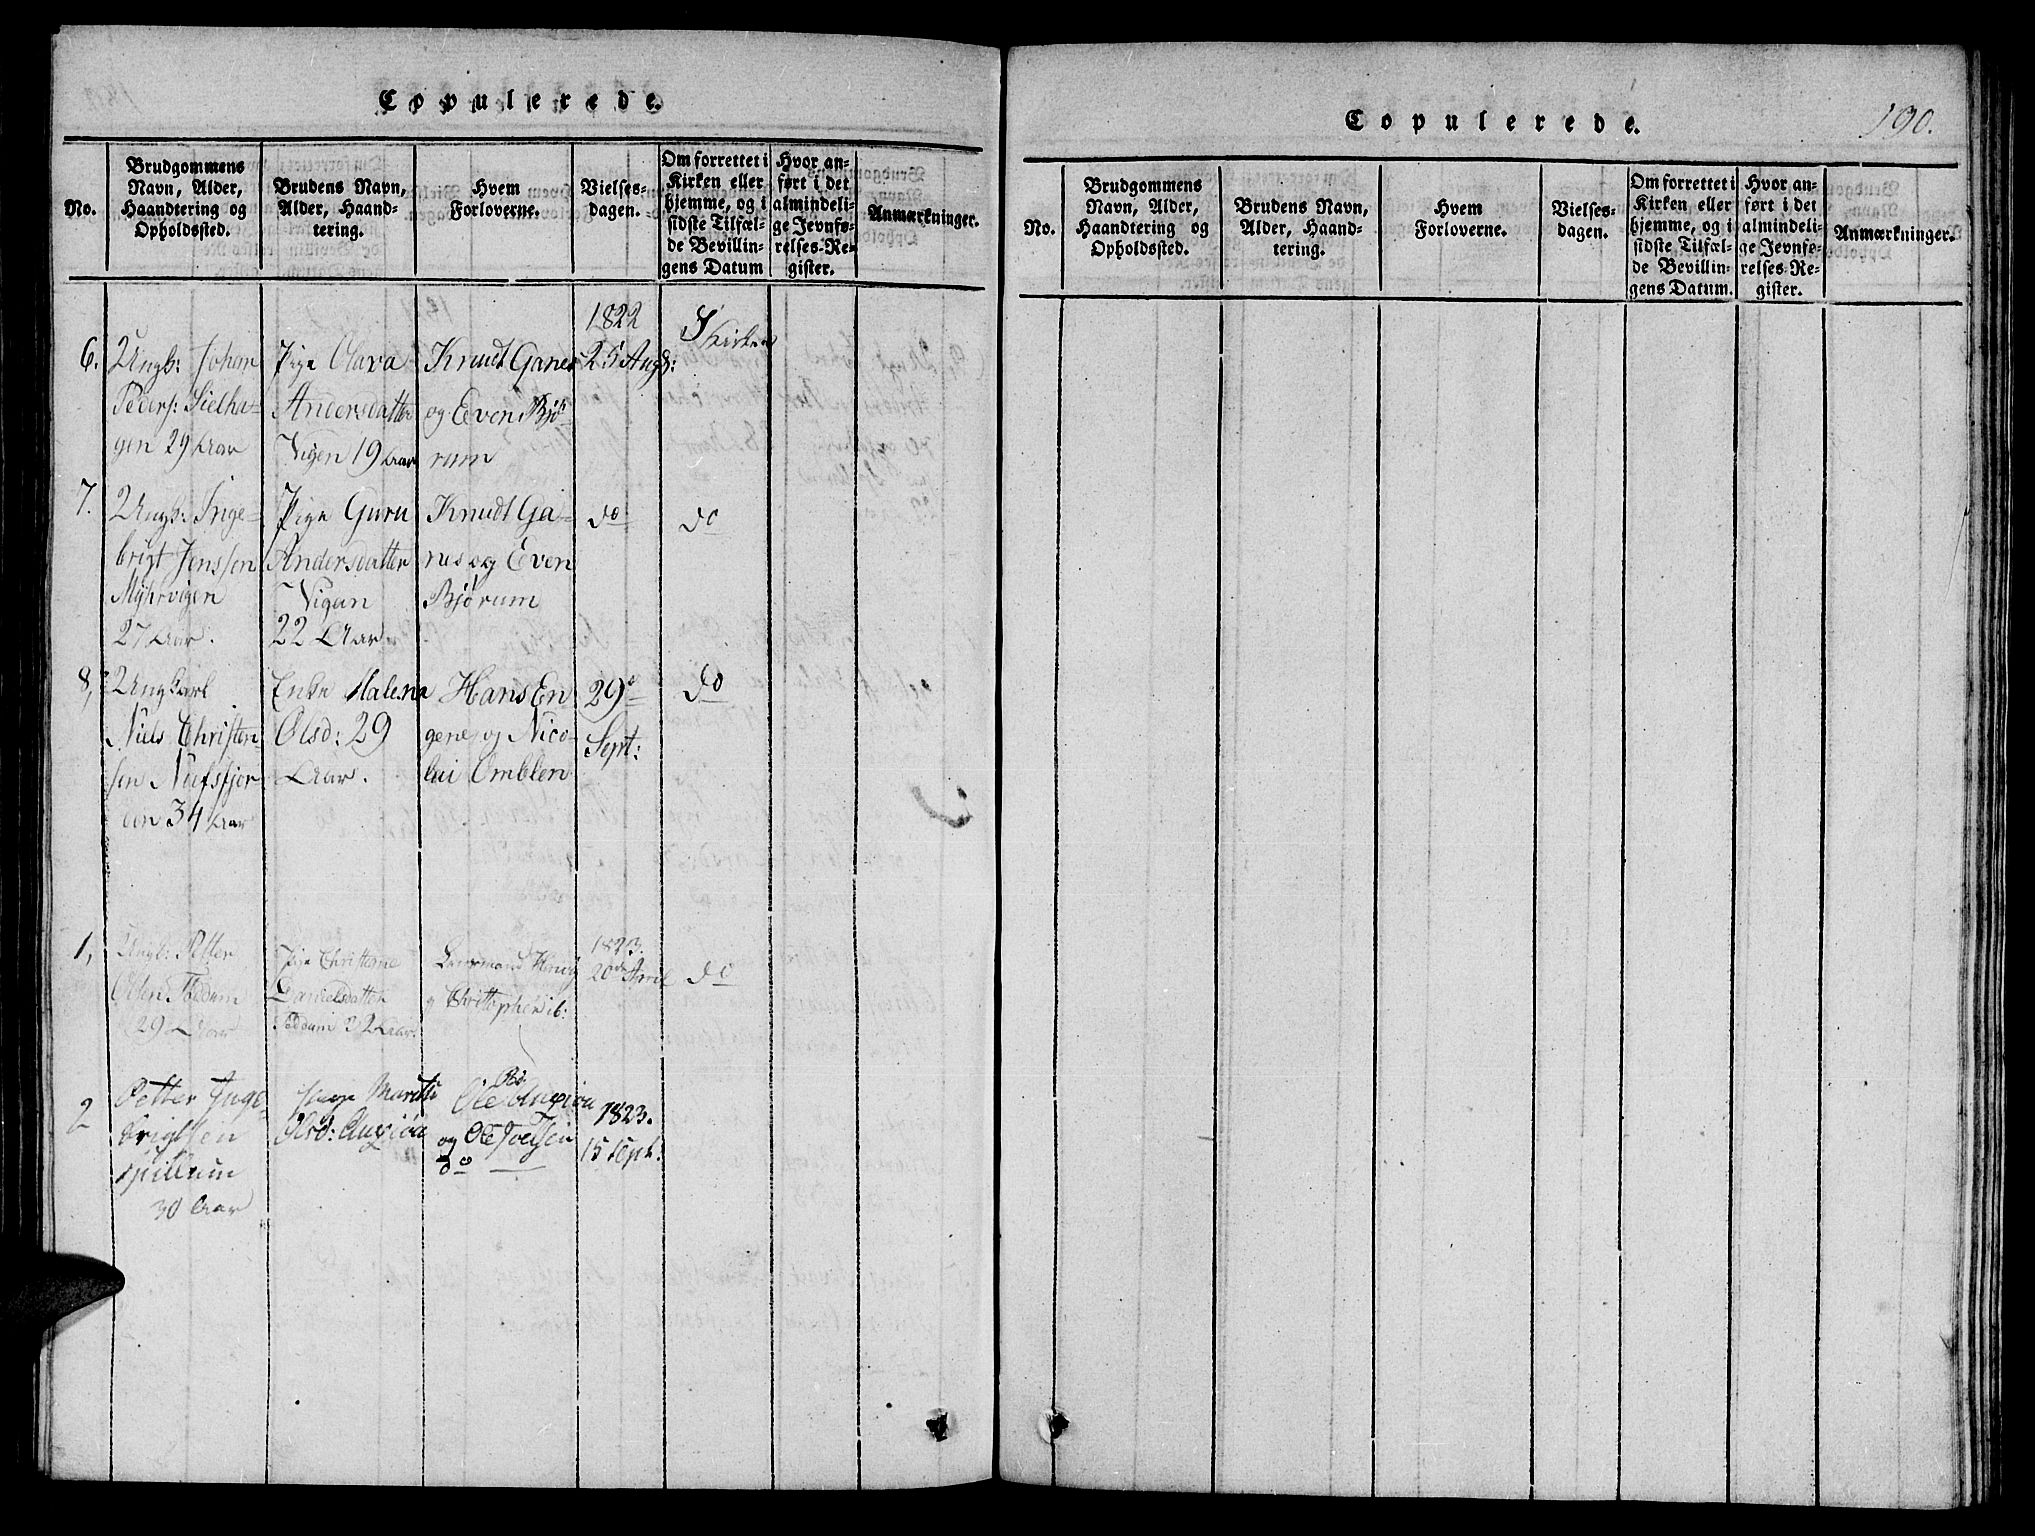 Copulerede.
No.
Brudgommens
Navn, Alder,
Haandtering og
Opholdssted.
Brudens Navn,
Alder, Haand-
tering.
Hvem
Forloverne.
Vielses-
dagen.
Om forrettet i
Kirken eller
hjemme, og i
sidste Tilfæl-
de Bevillin-
gens Datum
Hvor an-
ført i det
almindeli-
ge Jevnfø-
relses-Re-
gister.
Anmærkninger.
6.
Ungk: Johan
Peders: Sielha-
gen 29 Aar
Pige Olava
Andersdatter
Vigen 19 Aar
Knudt Ganes
og Even Bjø-
rum
1822
25 Aug:
I Kirken
7.
Ungk: Inge-
brigt Jenssen
Myhrvigen
27 Aar.
Pige Guru
Andersdatter
Vigen
22 Aar
Knudt Ga-
nes og Even
Bjørum
do
do
8,
Ungkarl
Niels Christen-
sen Nufsfjor-
den 34 Aar
Enke Malena
Olsd: 29
Aar.
Hans En
gene og Nico-
lai Omblen
29
Sept:
do
1,
Ungk: Petter
Olsen Foddum
29 Aar
Pige Christerne
Danielsdatter
Foddum 32 Aar.
Christopher ib:
1823.
20de April
do
2
Petter Inge-
brigtsen
Spillum
30 Aar
Pige Marith
Olsd:
Ole
og Ole Joelsen
do
1823.
15 Sept.
Copulerede.
190.
No.
Brudgommens
Navn, Alder,
Haandtering og
Opholdssted.
Brudens Navn,
Alder, Haand-
tering.
Hvem
Forloverne.
Vielses-
dagen.
Om forrettet i
Kirken eller
hjemme, og i
sidste Tilfæl-
de Bevillin-
gens Datum.
Hvor an-
ført i det
almindeli-
ge Jevnfø-
relses-Re-
gister.
Anmærkninger.